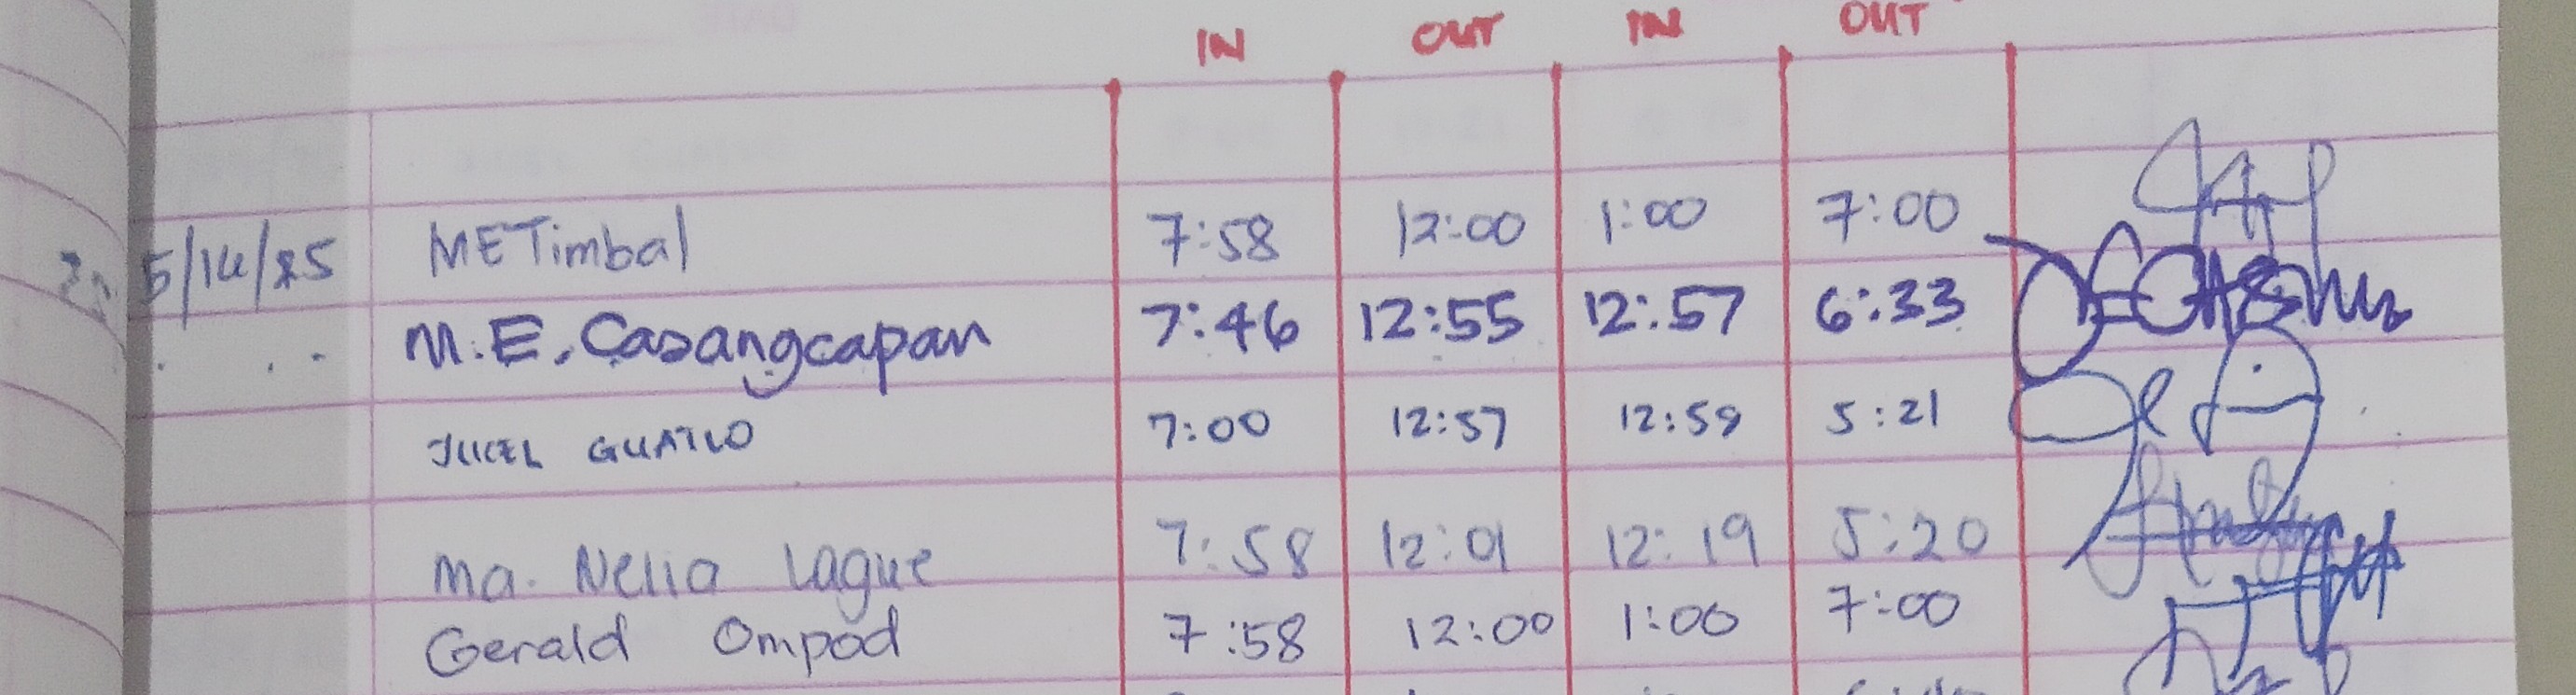 IN OUT IN OUT
5/14/25 METimbal 7:58 12:00 1:00 7:00
M.E. Casangcapan 7:46 12:55 12:57 6:33
GUATLO 7:00 12:57 12:59 5:21
Ma. Nelia Lague 7:58 12:01 12:19 5:20
Gerald Ompod 7:58 12:00 1:00 7:00